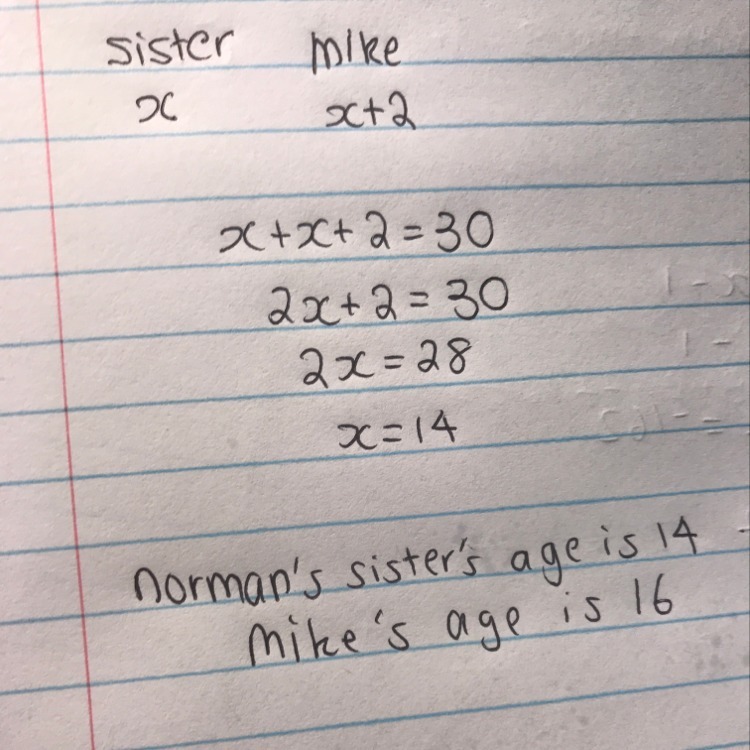 sister mike
x x+2
x+x+2=30
2x+2=30
2x=28
x=14
norman's sister's age is 14
mike's age is 16